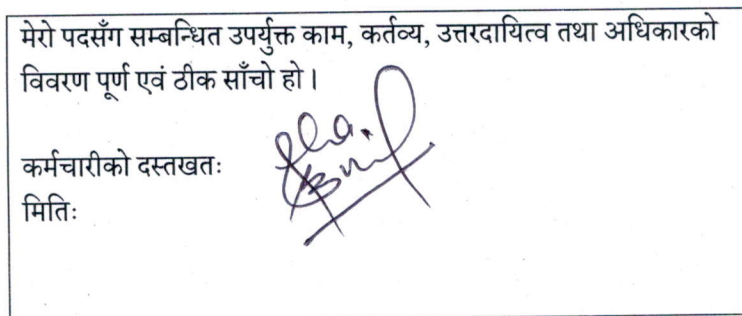 मेरो पदसँग सम्बन्धित उपर्युक्त काम, कर्तव्य, उत्तरदायित्व तथा अधिकारको
विवरण पूर्ण एवं ठीक साँचो हो।
कर्मचारीको दस्तखतः
मितिः